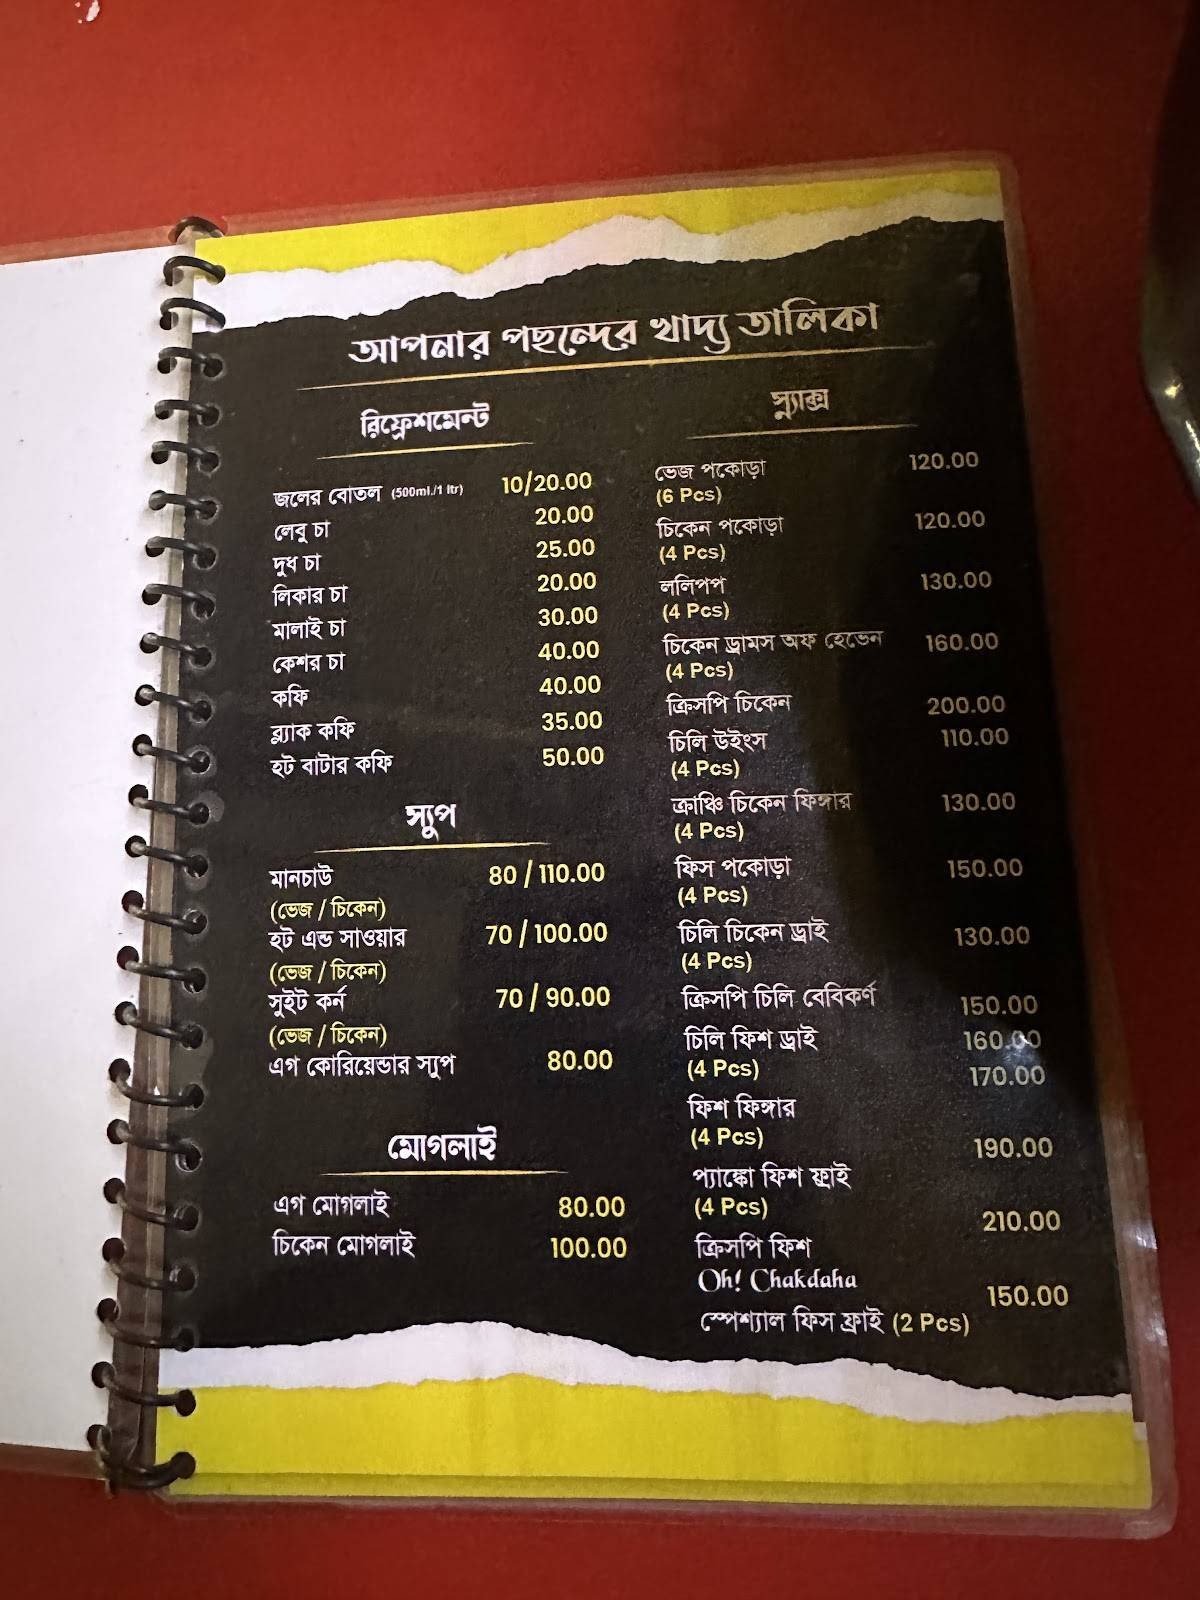 আপনার পছন্দের খাদ্য তালিকা
রিফ্রেশমেন্ট
জলের বোতল (500ml./1 ltr) 10/20.00
লেবু চা 20.00
দুধ চা 25.00
লিকার চা 20.00
মালাই চা 30.00
কেশর চা 40.00
কফি 40.00
ব্ল্যাক কফি 35.00
হট বাটার কফি 50.00
স্যুপ
মানচাউ 80 / 110.00
(ভেজ / চিকেন)
হট এন্ড সাওয়ার 70 / 100.00
(ভেজ / চিকেন)
সুইট কর্ন 70 / 90.00
(ভেজ / চিকেন)
এগ কোরিয়েন্ডার স্যুপ 80.00
মোগলাই
এগ মোগলাই 80.00
চিকেন মোগলাই 100.00
স্ন্যাক্স
ভেজ পকোড়া 120.00
(6 Pcs)
চিকেন পকোড়া 120.00
(4 Pcs)
ললিপপ 130.00
(4 Pcs)
চিকেন ড্রামস অফ হেভেন 160.00
(4 Pcs)
ক্রিসপি চিকেন 200.00
চিলি উইংস 110.00
(4 Pcs)
ক্রাঞ্চি চিকেন ফিঙ্গার 130.00
(4 Pcs)
ফিস পকোড়া 150.00
(4 Pcs)
চিলি চিকেন ড্রাই 130.00
(4 Pcs)
ক্রিসপি চিলি বেবিকর্ণ 150.00
চিলি ফিশ ড্রাই 160.00
(4 Pcs) 170.00
ফিশ ফিঙ্গার
(4 Pcs) 190.00
প্যাঙ্কো ফিশ ফ্রাই
(4 Pcs) 210.00
ক্রিসপি ফিশ
Oh! Chakdaha 150.00
স্পেশ্যাল ফিস ফ্রাই (2 Pcs)